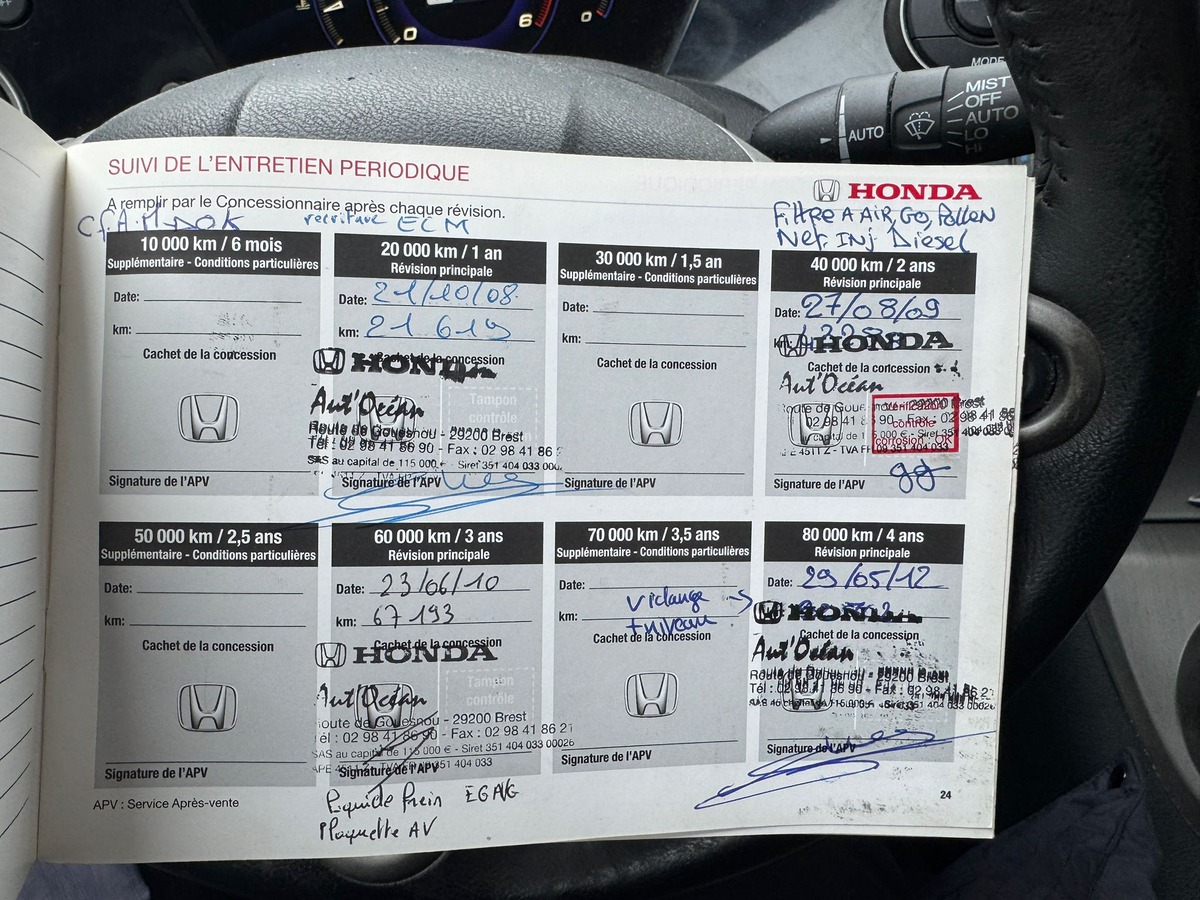 6
0
0
MODE
MIST
OFF
AUTO
LO
HI
AUTO
SUIVI DE L'ENTRETIEN PERIODIQUE
HONDA
A remplir par le Concessionnaire après chaque révision.
ECM
Filtre A AIR, GO, Pollen
Net. Inj Diesel
10 000 km / 6 mois
Supplémentaire - Conditions particulières
Date:
km:
Cachet de la concession
Signature de l'APV
20 000 km / 1 an
Révision principale
Date: 21/10/08
km: 21 619
Cachet de la concession
HONDA
Aut'Océan
Tampon
contrôle
Route de Gouesnou - 29200 Brest
Tél : 02 98 41 86 90 - Fax : 02 98 41
SAS au capital de 115 000 € - Siret 351 404 033 000
Signature de l'APV
30 000 km / 1,5 an
Supplémentaire - Conditions particulières
Date:
km:
Cachet de la concession
Signature de l'APV
40 000 km / 2 ans
Révision principale
Date: 27/08/09
km:
HONDA
Cachet de la concession
Aut'Océan
Route de Gouesnou - 29200 Brest
02 98 41 86 90 - Fax : 02 98 41 86
Vérification
contrôle
corrosion OK
Signature de l'APV
50 000 km / 2,5 ans
Supplémentaire - Conditions particulières
Date:
km:
Cachet de la concession
Signature de l'APV
60 000 km / 3 ans
Révision principale
Date: 23/06/10
km: 67 193
Cachet de la concession
HONDA
Aut'Océan
Tampon
contrôle
Route de Gouesnou - 29200 Brest
Tél : 02 98 41 86 90 - Fax : 02 98 41 86 21
SAS au capital de 115 000 € - Siret 351 404 033 00026
Signature de l'APV
Liquide frein
Plaquette AV
70 000 km / 3,5 ans
Supplémentaire - Conditions particulières
Date:
km:
vidange
+ niveau
Cachet de la concession
Signature de l'APV
80 000 km / 4 ans
Révision principale
Date: 29/05/12
HONDA
Cachet de la concession
Aut'Océan
Route de Gouesnou - 29200 Brest
Tél : 02 98 41 86 90 - Fax : 02 98 41 86 21
Signature de l'APV
APV : Service Après-vente
24